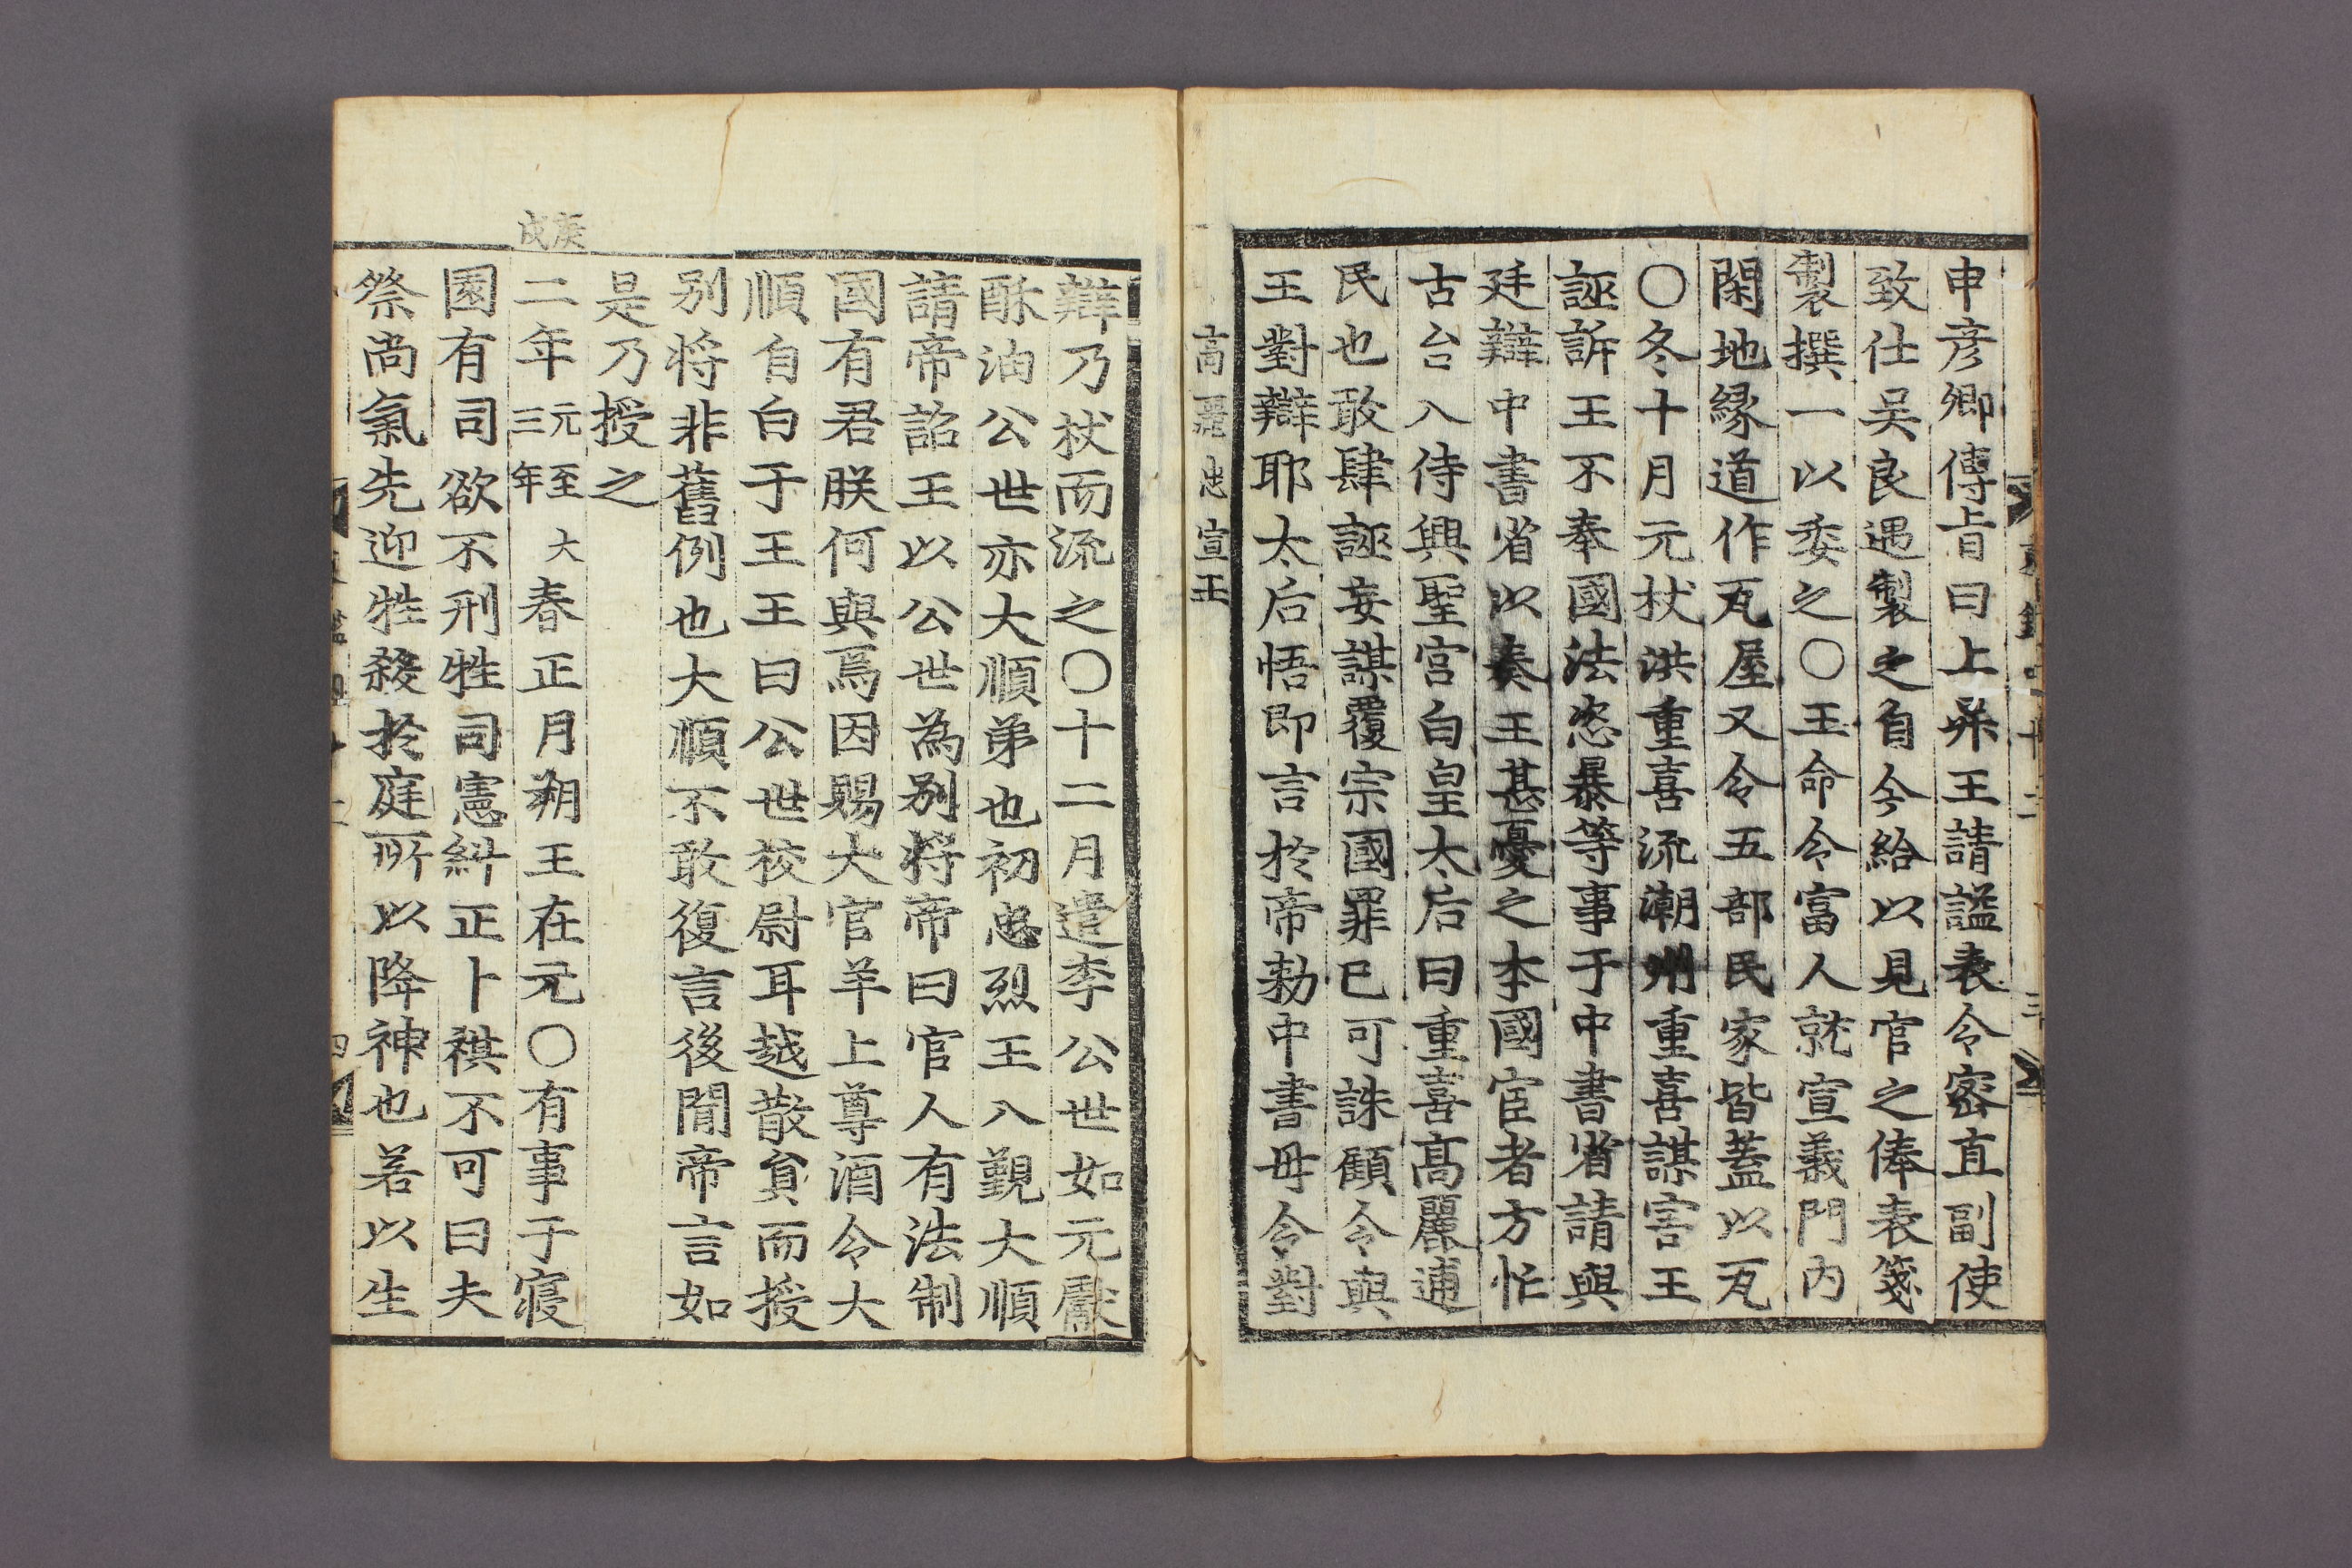 申彦卿傳旨曰上昇王請謚表令密直副使
致仕吴良遇製之自今給以見官之俸表箋
製撰一以委之〇王命令富人就宣義門内
閑地緣道作瓦屋又令五部民家皆蓋以瓦
〇冬十月元杖洪重喜流潮州重喜謀害王
誣訴王不奉國法恣暴等事于中書省請與
廷辯中書省以奏王甚憂之本國宦者方忙
古台入侍興聖宫白皇太后曰重喜髙麗逋
民也敢肆誣妄謀覆宗國罪已可誅顧令與
王對辯耶太后悟即言於帝勑中書毋令對
高麗忠宣王
辯乃杖而流之〇十二月遣李公世如元獻
酥油公世亦大順弟也初忠烈王入覲大順
請帝詔王以公世為别将帝曰官人有法制
國有君朕何與焉因賜大官羊上尊酒令大
順自白于王王曰公世校尉耳越散負而授
别将非舊例也大順不敢復言後聞帝言如
是乃授之
庚戌
二年元至大三年春正月朔王在元〇有事于寢
園有司欲不刑牲司憲糾正卜祺不可曰夫
祭尚氣先迎牲殺於庭所以降神也若以生